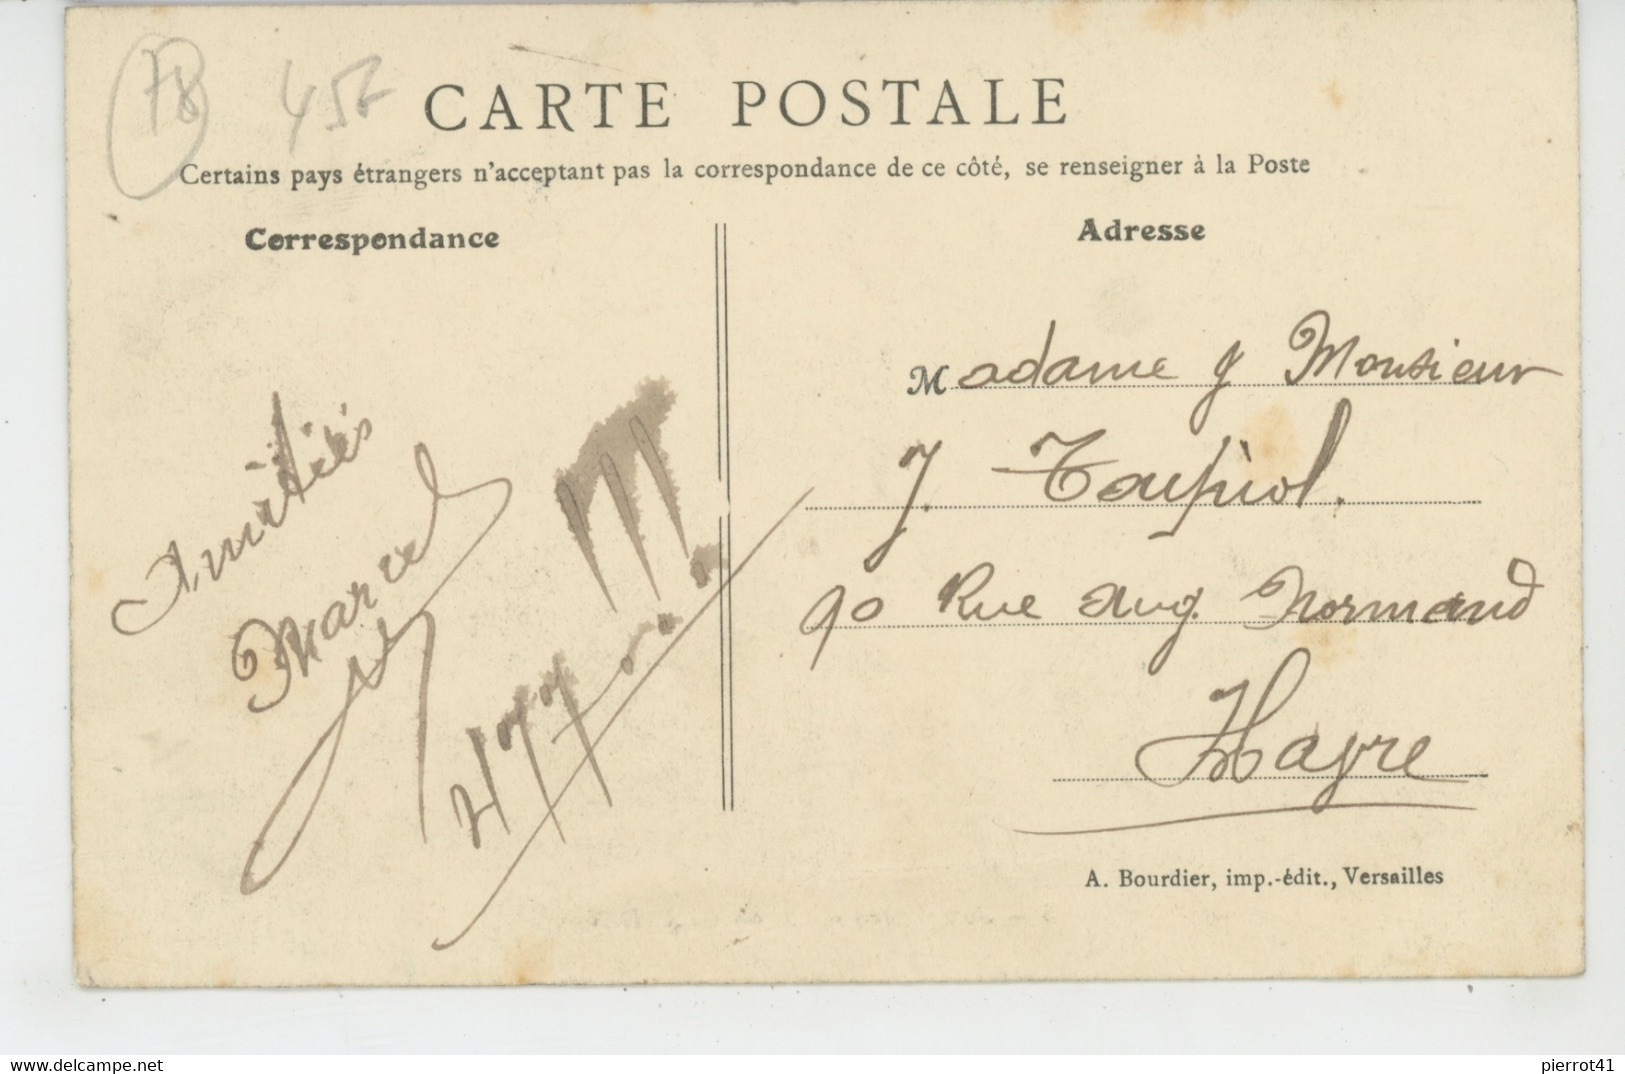 78 45F
CARTE POSTALE
Certains pays étrangers n'acceptant pas la correspondance de ce côté, se renseigner à la Poste
Correspondance
Adresse
Amitiés
Marcel
Madame & Monsieur
J. Taupiol.
90 Rue Aug. Normand
Havre
A. Bourdier, imp.-édit., Versailles
Delcampe.net
pierrot41